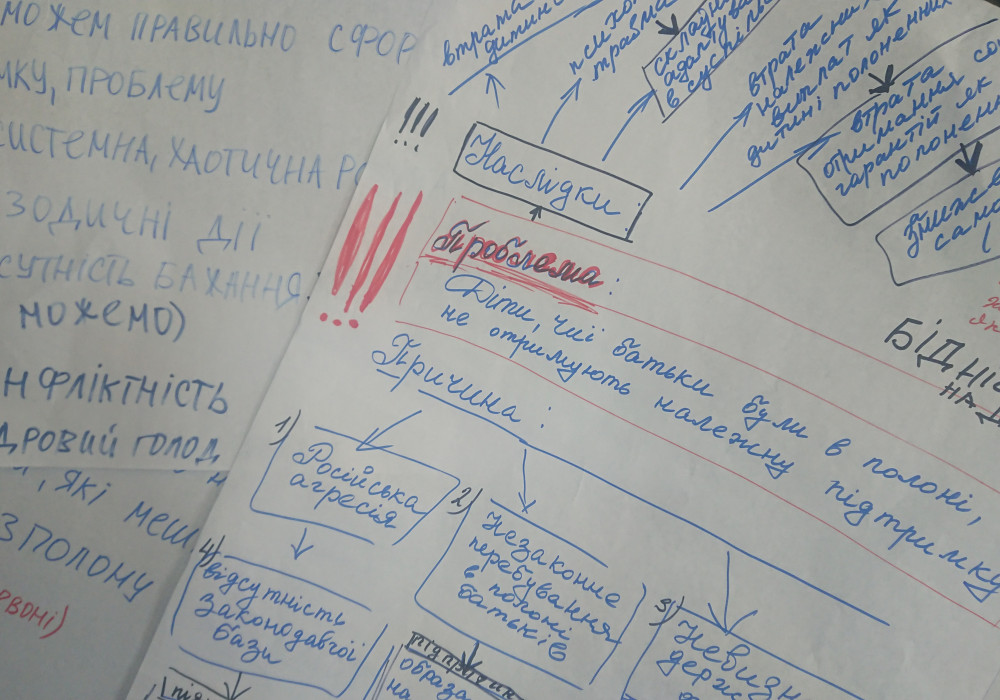 МОЖЕМ ПРАВИЛЬНО СФОР
МКУ, ПРОБЛЕМУ
СИСТЕМНА, ХАОТИЧНА РО
ЗОДИЧНІ ДІЇ
СУТНІСТЬ БАЖАННЯ.
МОЖЕМО)
НФЛІКТНІСТЬ
ДРОВИЙ ГОЛОД
, ЯКІ МЕШ
З ПОЛОМУ
РВОНІ)
втрата
дитинс
психо
травма
складни
адаптува
в суспіль
втрата
належних
виплат як
дитині полонених
втрата соц
отримання
гарантій як
полонен
Зниже
само
!!!
Наслідки:
!!!
Проблема:
Діти, чиї батьки були в полоні,
не отримують належну підтримку
БІДНІС
НА Д
Причина:
1) Російська
агресія
2) Незаконне
перебування
в полоні
батьків
3) Невизн
держ
4) відсутність
законодавчої
бази
підпричин
образа
на
підп